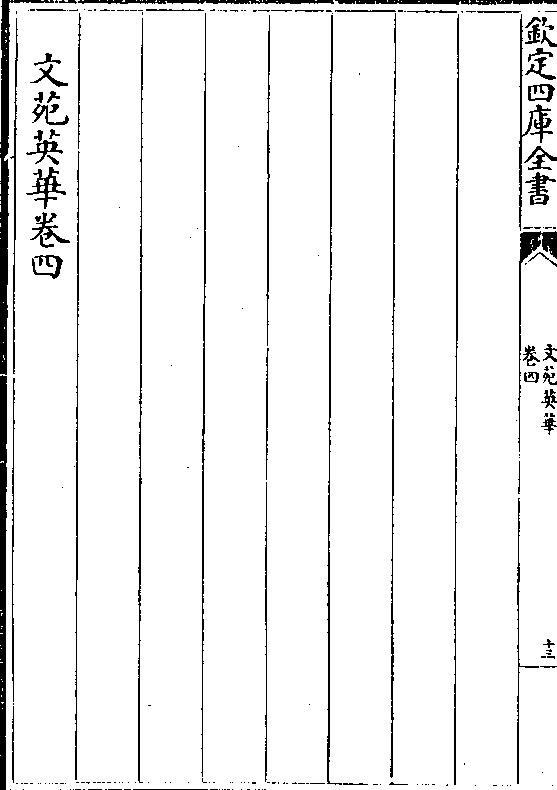 欽定四庫全書
文苑英華
卷四
十三
文苑英華卷四